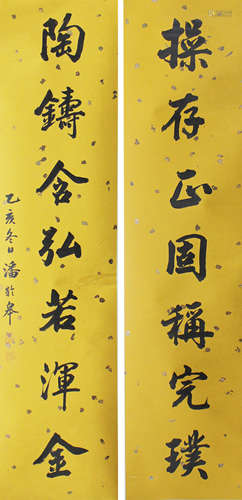 操存正固稱完璞
陶鑄含弘若渾金
乙亥冬日潘齡皋